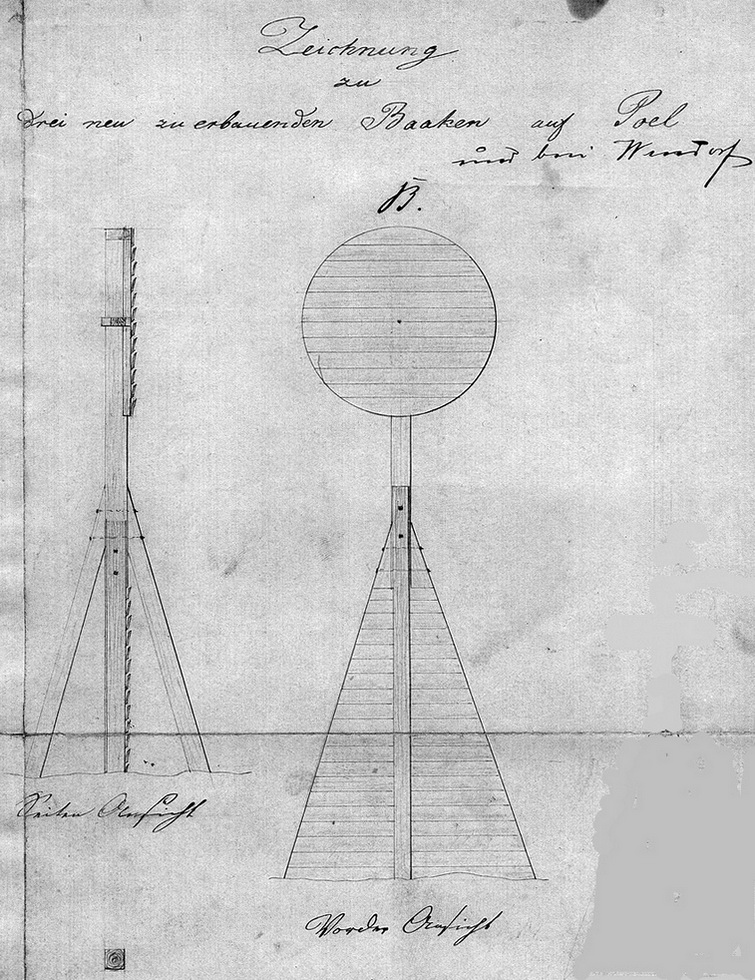 Zeichnung
zu
drei neu zu erbauenden Baaken auf Poel
und bei Wendorf
B.
Seiten Ansicht
Vorder Ansicht